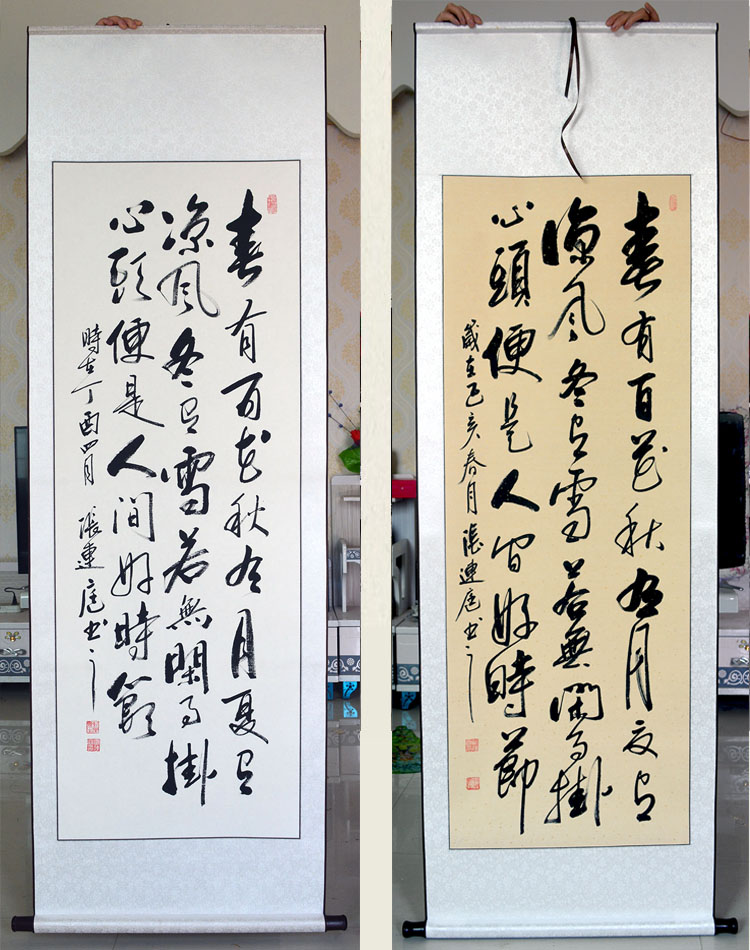 春有百花秋有月夏有
凉风冬有雪若無閑事掛
心頭便是人间好時節
時在丁酉四月 張連庭书
春有百花秋有月夏有
凉风冬有雪若無閑事掛
心頭便是人间好時節
歲在己亥春月張連庭书